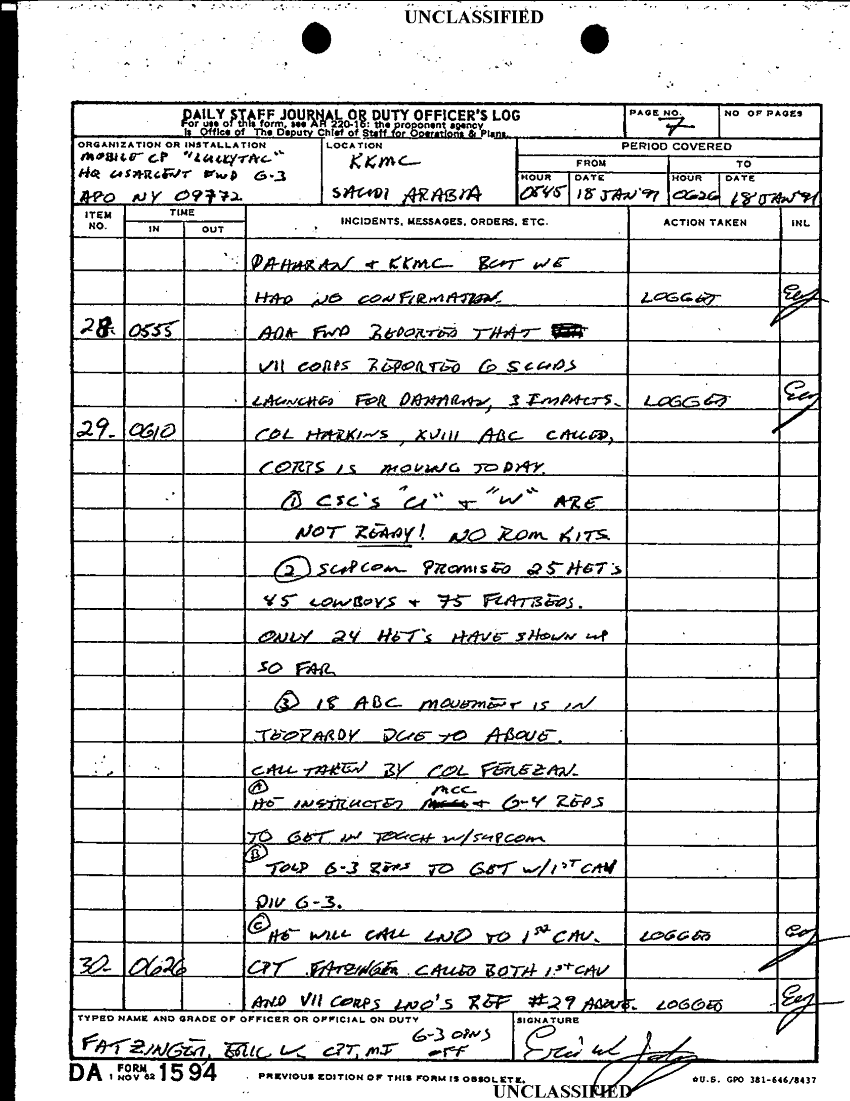 UNCLASSIFIED
DAILY STAFF JOURNAL OR DUTY OFFICER'S LOG
For use of this form, see AR 220-15; the proponent agency
is Office of The Deputy Chief of Staff for Operations & Plans.
PAGE NO.
7
NO OF PAGES
ORGANIZATION OR INSTALLATION
MOBILE CP "LUCKYTAC"
HQ USARCENT FWD G-3
APO NY 09772
LOCATION
KKMC
SAUDI ARABIA
PERIOD COVERED
FROM TO
HOUR DATE HOUR DATE
0545 18 JAN '91 0626 18 JAN '91
ITEM NO. TIME IN OUT INCIDENTS, MESSAGES, ORDERS, ETC. ACTION TAKEN INL
DAHARAN + KKMC BUT WE
HAD NO CONFIRMATION. LOGGED
28. 0555 ADA FWD REPORTED THAT
VII CORPS REPORTED 6 SCUDS
LAUNCHED FOR DAHARAN, 3 IMPACTS. LOGGED
29. 0610 COL HARKINS, XVIII ABC CALLED,
CORPS IS MOVING TODAY.
① CSC'S "U" + "W" ARE
NOT READY! NO ROM KITS
② SUPCOM PROMISED 25 HET'S
45 LOWBOYS + 75 FLATBEDS.
ONLY 24 HET'S HAVE SHOWN UP
SO FAR
③ 18 ABC MOVEMENT IS IN
JEOPARDY DUE TO ABOVE.
CALL TAKEN BY COL FEREZAN.
Ⓐ HE INSTRUCTED MCC + G-4 REPS
TO GET IN TOUCH W/SUPCOM
Ⓑ TOLD G-3 REPS TO GET W/1ST CAV
DIV G-3.
Ⓒ HE WILL CALL LNO TO 1ST CAV. LOGGED
30. 0626 CPT FATZINGER CALLED BOTH 1ST CAV
AND VII CORPS LNO'S REF #29 ABOVE. LOGGED
TYPED NAME AND GRADE OF OFFICER OR OFFICIAL ON DUTY
FATZINGER, ERIC W. CPT, MI G-3 OPNS OFF
SIGNATURE
DA FORM 1 NOV 62 1594
PREVIOUS EDITION OF THIS FORM IS OBSOLETE.
☆U.S. GPO 381-646/8437
UNCLASSIFIED